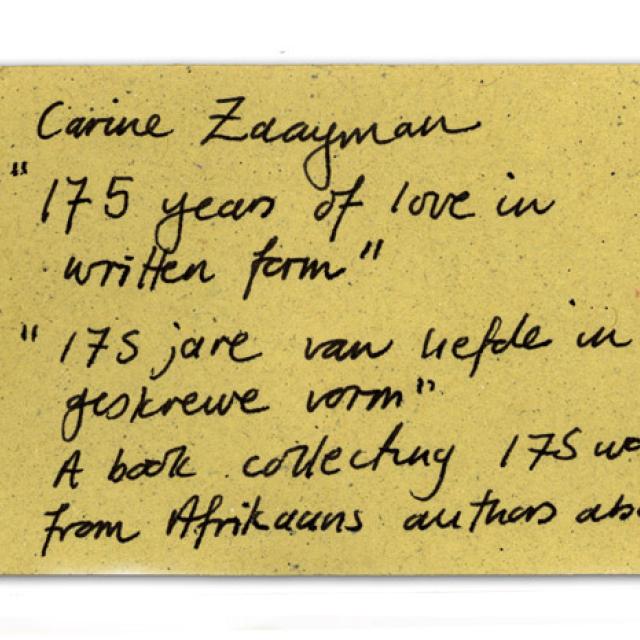 Carine Zaayman
"175 years of love in
written form"
"175 jare van liefde in
geskrewe vorm"
A book collecting 175
from Afrikaans authors